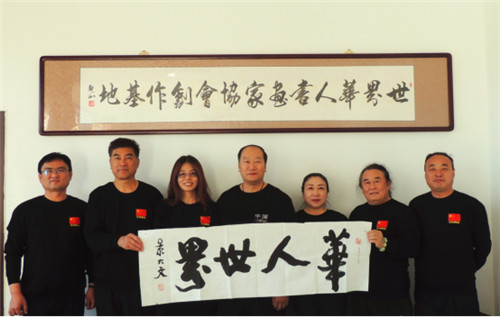 世界華人書畫家協會創作基地
華人世界
景大文
中国